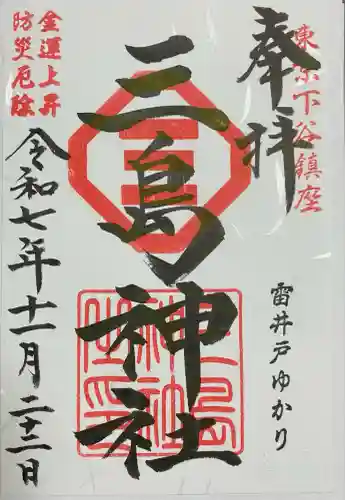 東京下谷鎮座
奉拝
雷井戸ゆかり
三
三島神社
三島神社之印
金運上昇
防災厄除
令和七年十一月二十二日